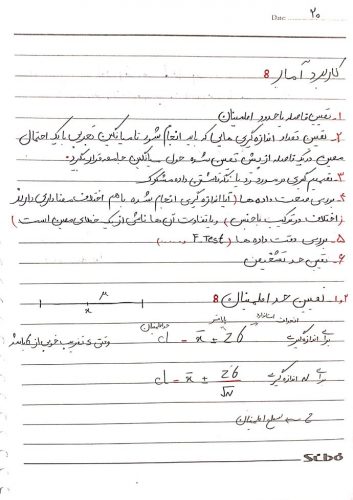 Date ۲۰
کاربرد آمار 8
۱- تعیین فاصله یا حدود اطمینان
۲- تعیین تعداد اندازه گیری هایی که باید انجام شود تا میانگین تجربی با یک احتمال
معین در یک فاصله از پیش تعیین شده حول میانگین جامعه قرار گیرد.
۳- تصمیم گیری در مورد رد یا نگه داشتن داده مشکوک
۴- بررسی صحت داده ها (آیا اندازه گیری انجام شده با هم اختلاف معناداری دارند
(اختلاف در ترکیب یا جنس) و یا تفاوت آن ها ناشی از یک خطای معین است)
۵- بررسی دقت داده ها (F.Test ......)
۶- تعیین حد تشخیص
۱،۲ تعیین حد اطمینان 8
μ
x
انحراف استاندارد
حد اطمینان
برای اندازه گیری cl = x̄ ± zσ وقتی s تقریب خوبی از σ باشد
برای N اندازه گیری cl = x̄ ± zσ/√N
سطح اطمینان
scbo